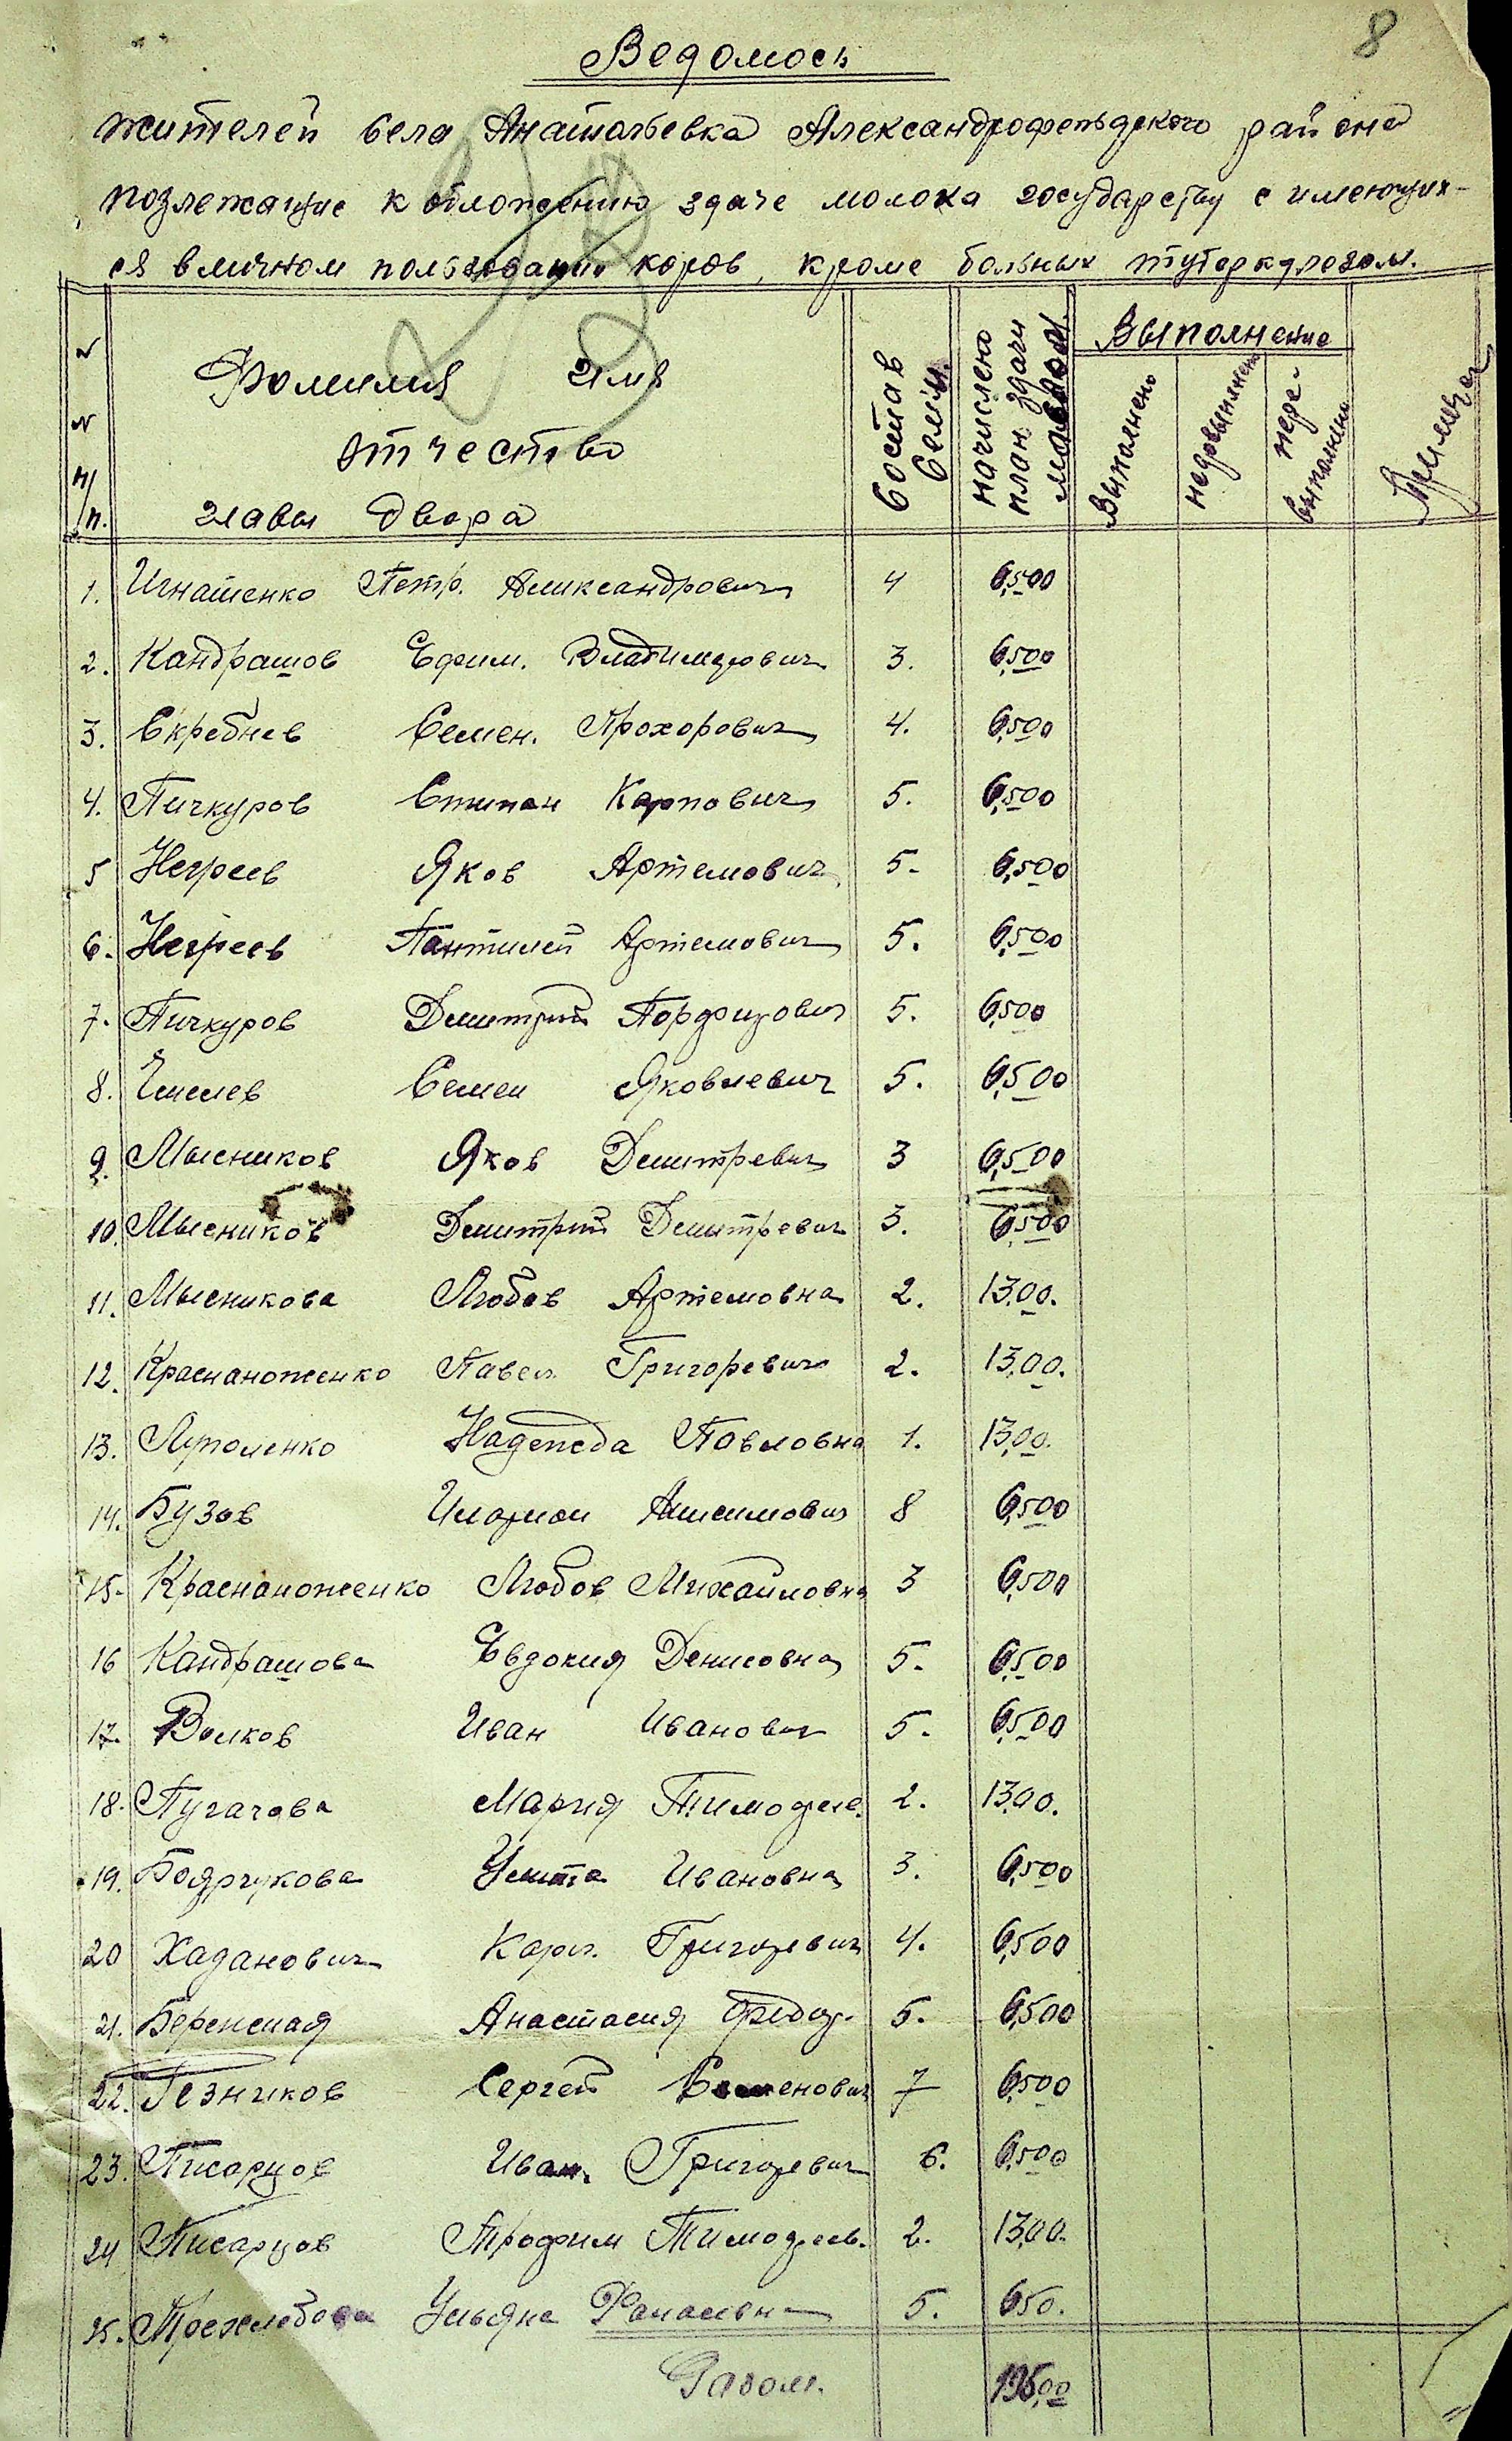 8
Ведомось
жителей села Анатольевка Александрофельдского района
подлежащие к обложению здаче молока государству с имеющих-
ся в личном пользовании коров, кроме больных туберкулезом.
N N п/п. Фамилия Имя отчество главы двора Состав Семьи начислено план здачи Выполнение
Выполнено недовыполнено пере-выполнено
1. Игнатенко Петр. Аликсандрович 4 6,500
2. Кандрашов Ефим. Владимирович 3. 6,500
3. Скребнев Семен. Прохорович 4. 6,500
4. Пичкуров Стипан Карпович 5. 6,500
5 Негреев Яков Артемович 5. 6,500
6. Негреев Пантилей Артемович 5. 6,500
7. Пичкуров Дмитрий Порфирович 5. 6,500
8. Семен Яковлевич 5. 6,500
9. Мысников Яков Дмитревич 3 6,500
10. Мысников Дмитрий Дмитревич 3. 6,500
11. Мысникова Любов Артемовна 2. 13,00.
12. Краснаноженко Павел. Григоревич 2. 13,00.
13. Надежда Павловна 1. 13,00.
14. Бузов Иларион Анисимович 8 6,500
15. Краснаноженко Любов Михайловна 3 6,500
16 Кандрашова Евдокия Денисовна 5. 6,500
17. Волков Иван Иванович 5. 6,500
18. Пугачова Мария Тимофее. 2. 13,00.
19. Боярчукова Ивановна 3. 6,500
20 Хаданович Карп. Григоревич 4. 6,500
21. Анастасия Федор. 5. 6,500
22. Резников Сергей Семенович 7 6,500
23. Писарцов Иван. Григоревич 6. 6,500
24 Писарцов Трофим Тимофеев. 2. 13,00.
25. Ульяна 5. 650.
Разом. 195,00